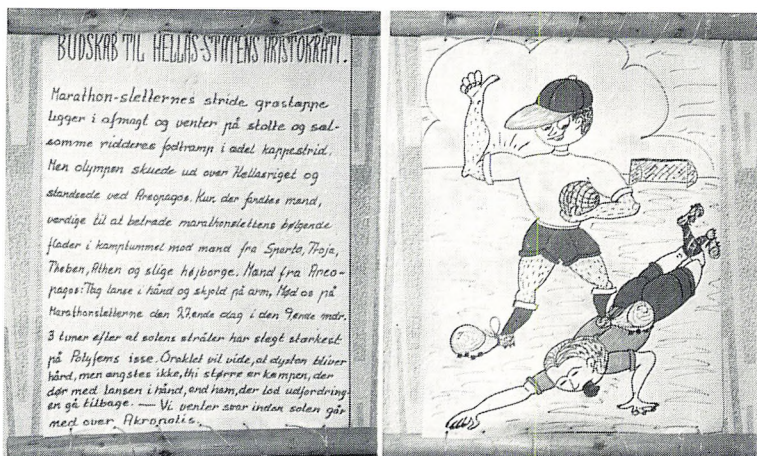 BUDSKAB TIL HELLAS-STATENS ARISTOKRATI.
Marathon-sletternes stride græstæppe
ligger i afmagt og venter på stolte og sæl-
somme ridderes fodtramp i ædel kappestrid.
Men olympen skuede ud over Hellasriget og
standsede ved Areopagos. Kun der fandtes mænd,
værdige til at betræde marathonslettens bølgende
flader i kamptummel mod mænd fra Sparta, Troja,
Theben, Athen og slige højborge. Mænd fra Areo-
pagos: Tag lanse i hånd og skjold på arm, Mød os på
Marathonsletterne den 27,ende dag i den 9,ende mdr.
3 timer efter at solens stråler har stegt stærkest
på Polyfems isse. Oraklet vil vide, at dysten bliver
hård, men ængstes ikke, thi større er kæmpen, der
dør med lansen i hånd, end ham, der lod udfordring-
en gå tilbage. — Vi venter svar inden solen går
ned over Akropolis.